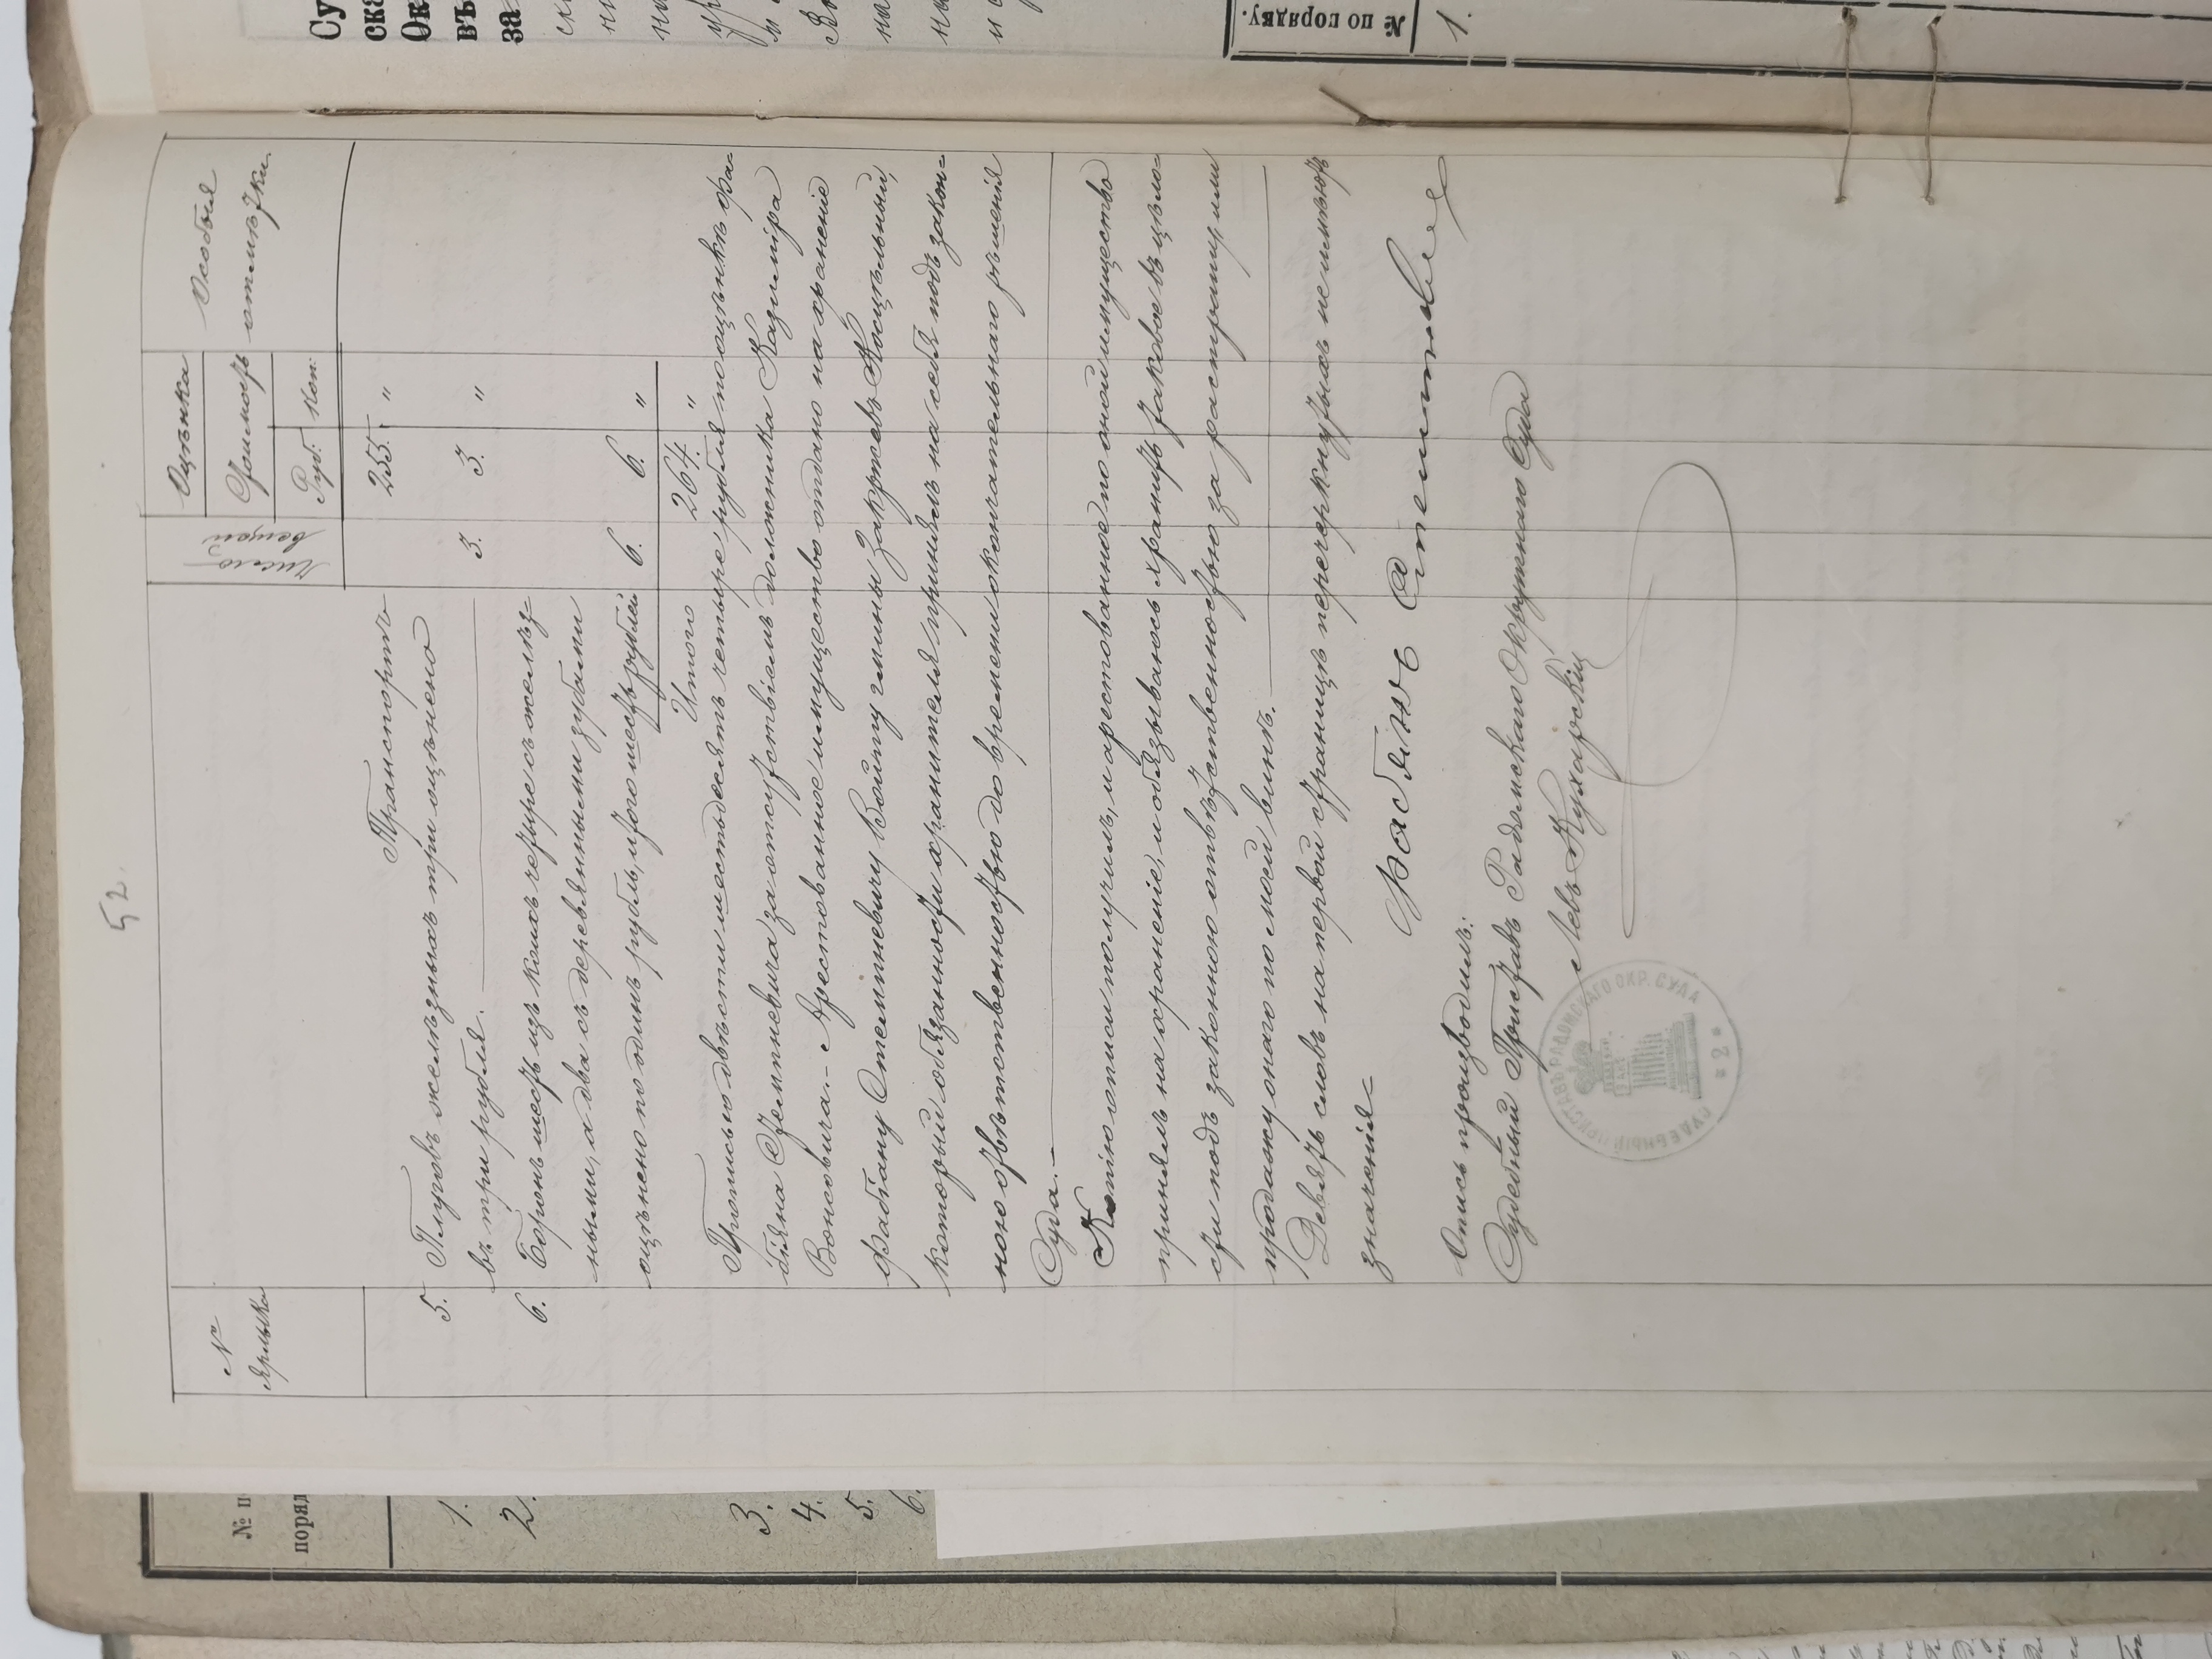 52.
№ Ярлыка
Число вещей
Оцѣнка
Стоимость
Руб. Коп.
Особыя отмѣтки
Транспортъ 255. "
5. Плуговъ желѣзныхъ три оцѣнено
въ три рубля. 3. 3. "
6. Боронъ шесть изъ коихъ четыре съ желѣз-
ными, а два съ деревянными зубами
оцѣнено по одинъ рубль, итого шесть рублей 6. 6. "
Итого 264. "
Прописью двѣсти шестьдесятъ четыре рубля по оцѣнкѣ Фа-
біяна Стемпневича за отсутствіемъ должника Казиміра
Вонсовича. - Арестованное имущество отдано на храненіе
Фабіану Стемпневичу Войту гмины Закржевъ Косцѣльный,
который обязанности хранителя принялъ на себя подъ закон-
ною отвѣтственностью до времени окончательнаго рѣшенія
Суда. -
Копію описи получилъ, и арестованное по оной имущество
принялъ на храненіе, и обязываюсь хранить таковое въ цѣло-
сти подъ законною отвѣтственностью за растрату, или
продажу онаго по моей винѣ.
Девять словъ на первой страницѣ перечеркнутыхъ не имѣютъ
значенія
Опись производилъ:
Судебный Приставъ Радомскаго Окружнаго Суда
Левъ Кухарскій
СУДЕБНЫЙ ПРИСТАВЪ РАДОМСКАГО ОКР. СУДА
* 2 *
№ по порядку.
1.
Су
ска
Ок
въ
за
№ п
поряд
1.
2.
3.
4.
5.
6.